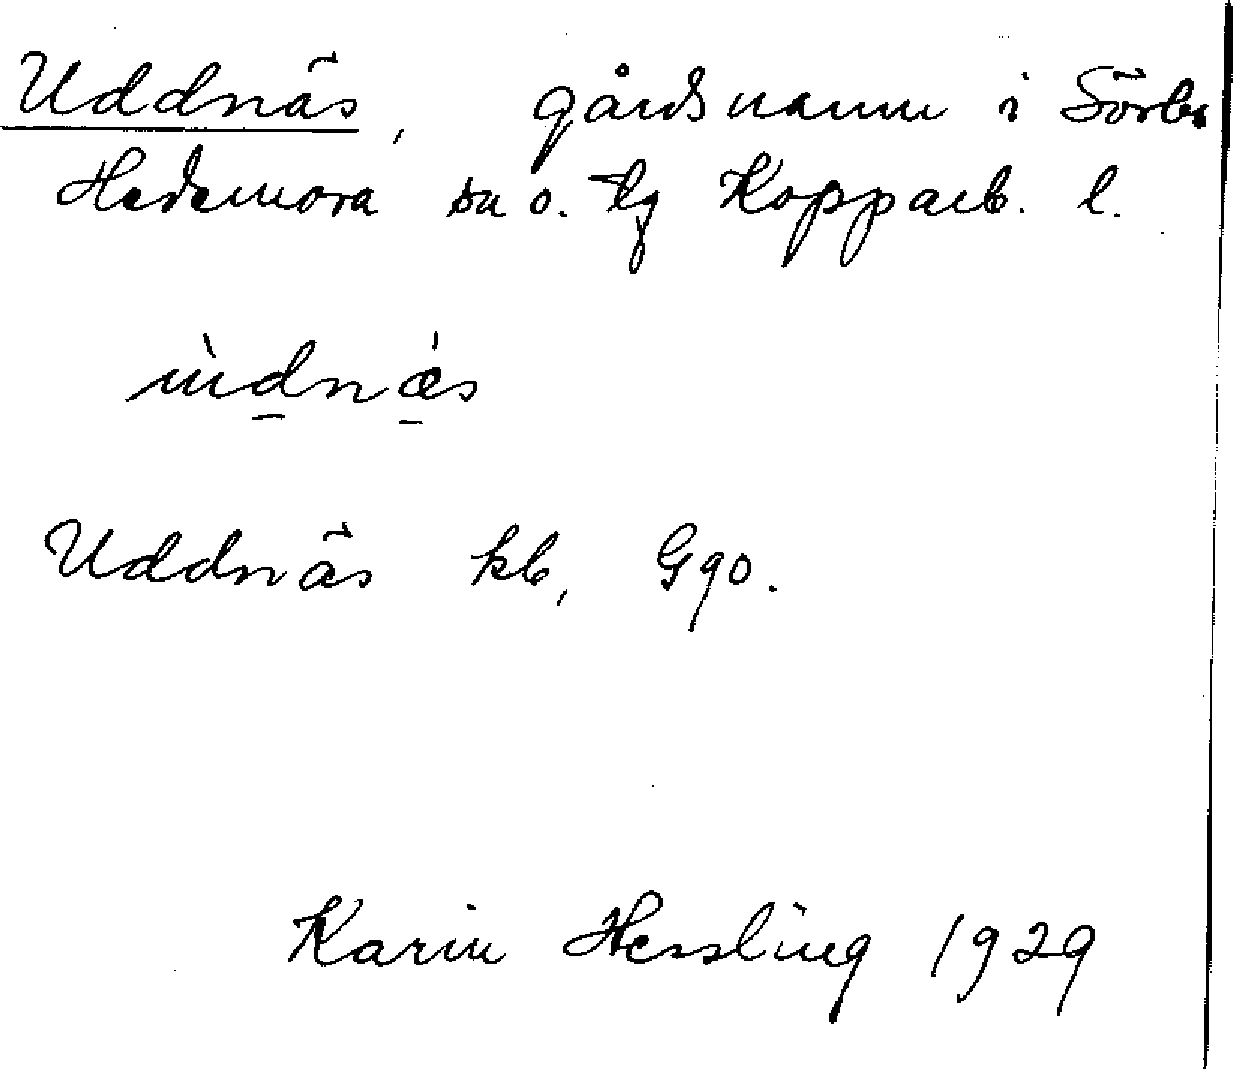 Uddnäs, gårdsnamn i Sörbo
Hedemora sn o. tg Kopparb. l.
ùdnǽs
Uddnäs kb, Ggo.
Karin Hessling 1929